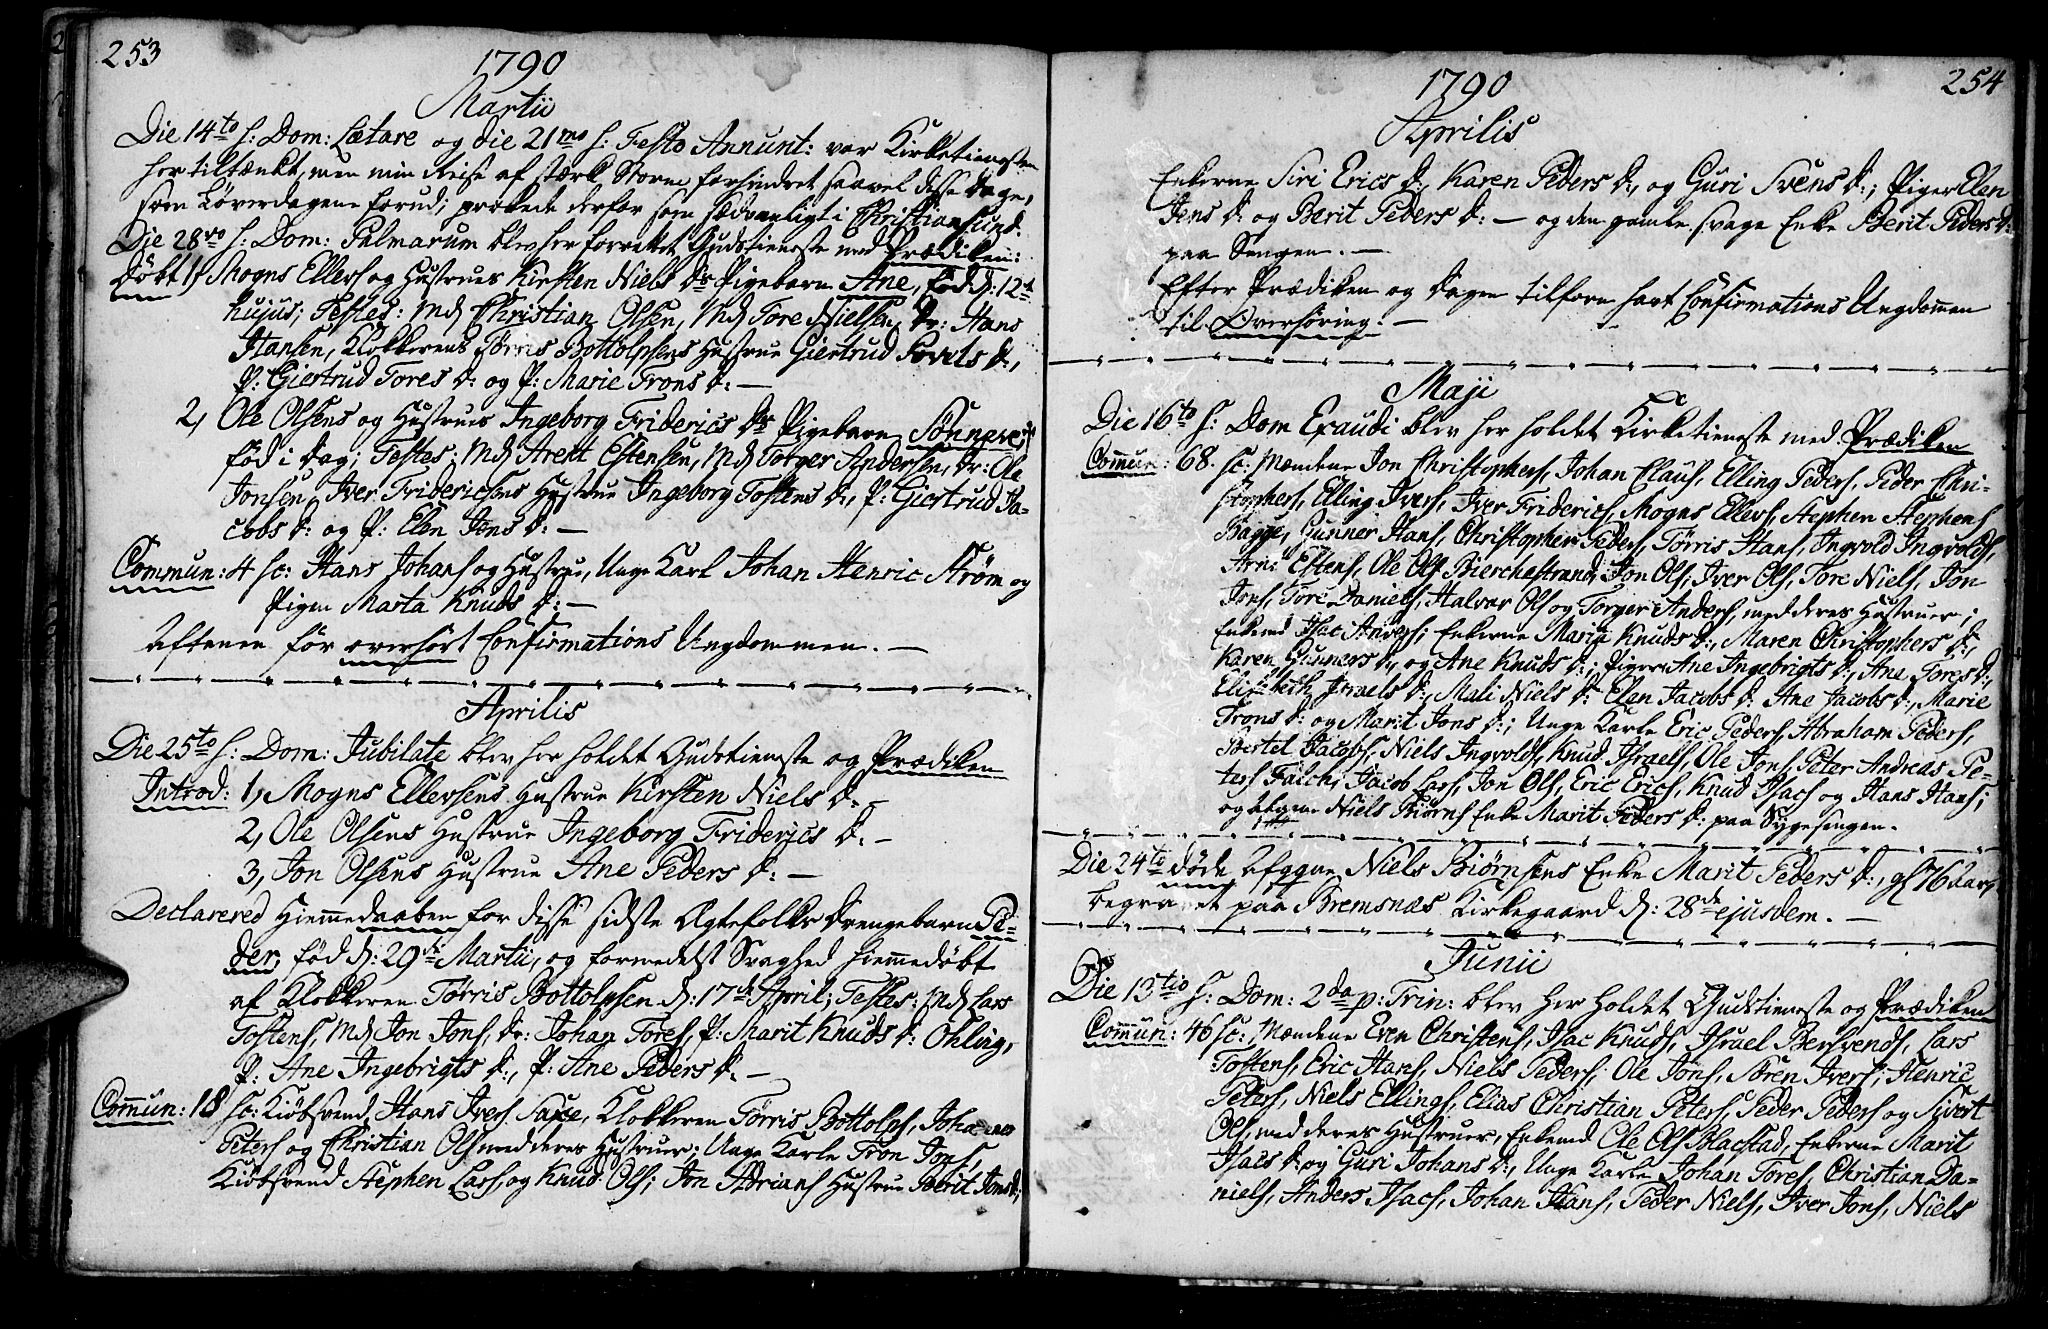 253
1790
Martii
Die 14to h: Dom: Lætare og die 21mo h: Festo Annunt: var Kirketienesten
her tiltænkt, men min Reise af stærk Storm forhindret saavel disse Dage,
som Løverdagene forud; prækede derfor som sædvanligt i Christiansund.
Die 28vo h: Dom: Palmarum blev her forrettet Gudstieneste med Prædiken:
Døbt 1, Mogns Ellers og Hustrues Kirsten Niels Dr Pigebarn Ane, fød d: 12te
hujus; Testes: Md Christian Olsen, Md Tore Nielsen, Dr: Hans
Hansen, Klokkerens Tørris Bottolpsens Hustrue Giertrud Siverts D:,
P: Giertrud Tores D: og P: Marie Trons D: —
2, Ole Olsens og Hustrues Ingeborg Friderics Drs Pigebarn Sønnev
fød i Dag; Testes: Md Arent Estensen, Md Torger Andersen, Dr: Ole
Jonsen, Iver Fridericsens Hustrue Ingeborg Tostens D:, P: Giertrud Ja-
cobs D: og P: Elen Jens D: —
Commun: 4 sc: Hans Johans og Hustrue, Unge Karl Johan Henric Strøm og
Pigen Marta Knuds D: —
Aftenen før overhørt Confirmations Ungdommen. —
Aprilis
Die 25to h: Dom: Jubilate blev her holdet Gudstieneste og Prædiken
Introd: 1, Mogns Ellersens Hustrue Kirsten Niels D: —
2, Ole Olsens Hustrue Ingeborg Friderics D: —
3, Jon Olsens Hustrue Ane Peders D: —
Declarered Hiemmedaaben for disse sidste Ægtefolks Drengebarn Pe-
der, fød d: 29de Martii, og formedelst Svaghed hiemmedøbt
af Klokkeren Tørris Bottolpsen d: 17de April; Testes: Md Lars
Tostens, Md Jon Jons, Dr: Johan Tores, P: Marit Knuds D: Ohling,
P: Ane Ingebrigts D:, P: Ane Peders D: —
Commun: 18 sc: Kiøbsvend Hans Ivers Saxe, Klokkeren Tørris Bottolps, Johannes
Peters og Christian Ols med deres Hustruer; Unge Karle Tron Jons,
Kiøbsvend Stephen Lars, og Knud Ols; Jon Adrians Hustrue Berit Jons D:;
254
1790
Aprilis
Enkerne Siri Erics D:, Karen Peders D:, og Guri Svens D:; Piger Elen
Jens D: og Berit Peders D: — og den gamle svage Enke Berit Peders D:
paa Sengen. —
Efter Prædiken og Dagen tilforn havt Confirmations Ungdommen
til Overhøring. —
Maji
Die 16to h: Dom Exaudi blev her holdet Kirketieneste med Prædiken
Commun: 68. sc: Mændene Jon Christophers, Johan Claus, Elling Peders, Peder Chri-
stophers, Elling Ivers, Iver Friderics, Mogns Ellers, Stephen Stephens
Bagge, Gunner Hans, Christopher Peders, Tørris Hans, Ingvold Ingvolds,
Arne Estens, Ole Ols Bierchestrand, Jon Ols, Iver Ols, Tore Niels, Jon
Jons, Tore Daniels, Halvar Ols og Torger Anders, med deres Hustruer;
Enkemd Isac Anders; Enkerne Marie Knuds D:, Maren Christophers D:,
Karen Gunners D:, og Ane Knuds D:; Pigerne Ane Ingebrigts D:, Ane Tores D:,
Elisabeth Israels D:, Mali Niels D: Elen Jacobs D: Ane Jacobs D:, Marie
Trons D: og Marit Jons D:; Unge Karle Eric Peders, Abraham Peders,
Bertel Jacobs, Niels Ingvolds, Knud Israels, Ole Jons, Peter Andreas Pe-
ters Falch, Jacob Lars, Jon Ols, Eric Erics, Knud Isacs og Hans Hans;
og afgne Niels Biørns Enke Marit Peders D: paa Sygesengen.
Die 24to døde Afgne Niels Biørnsens Enke Marit Peders D:, gl 76 aar,
begravet paa Bremsnæs Kirkegaard d: 28de ejusdem. —
Junii
Die 13tio h: Dom: 2da p: Trin: blev her holdet Gudstieneste og Prædiken
Commun: 46 sc: Mændene Even Christens, Isac Knuds, Israel Bersvends, Lars
Tostens, Eric Hans, Niels Peders; Ole Jons, Søren Ivers; Henric
Peters, Niels Ellings, Elias Christian Peters, Peder Peders og Sivert
Ols, med deres Hustruer, Enkemd Ole Ols Blacstad, Enkerne Marit
Isacs D: og Guri Johans D:, Unge Karle Johan Tores, Christian Da-
niels, Anders Isacs, Johan Hans, Peder Niels, Iver Jons, Niels